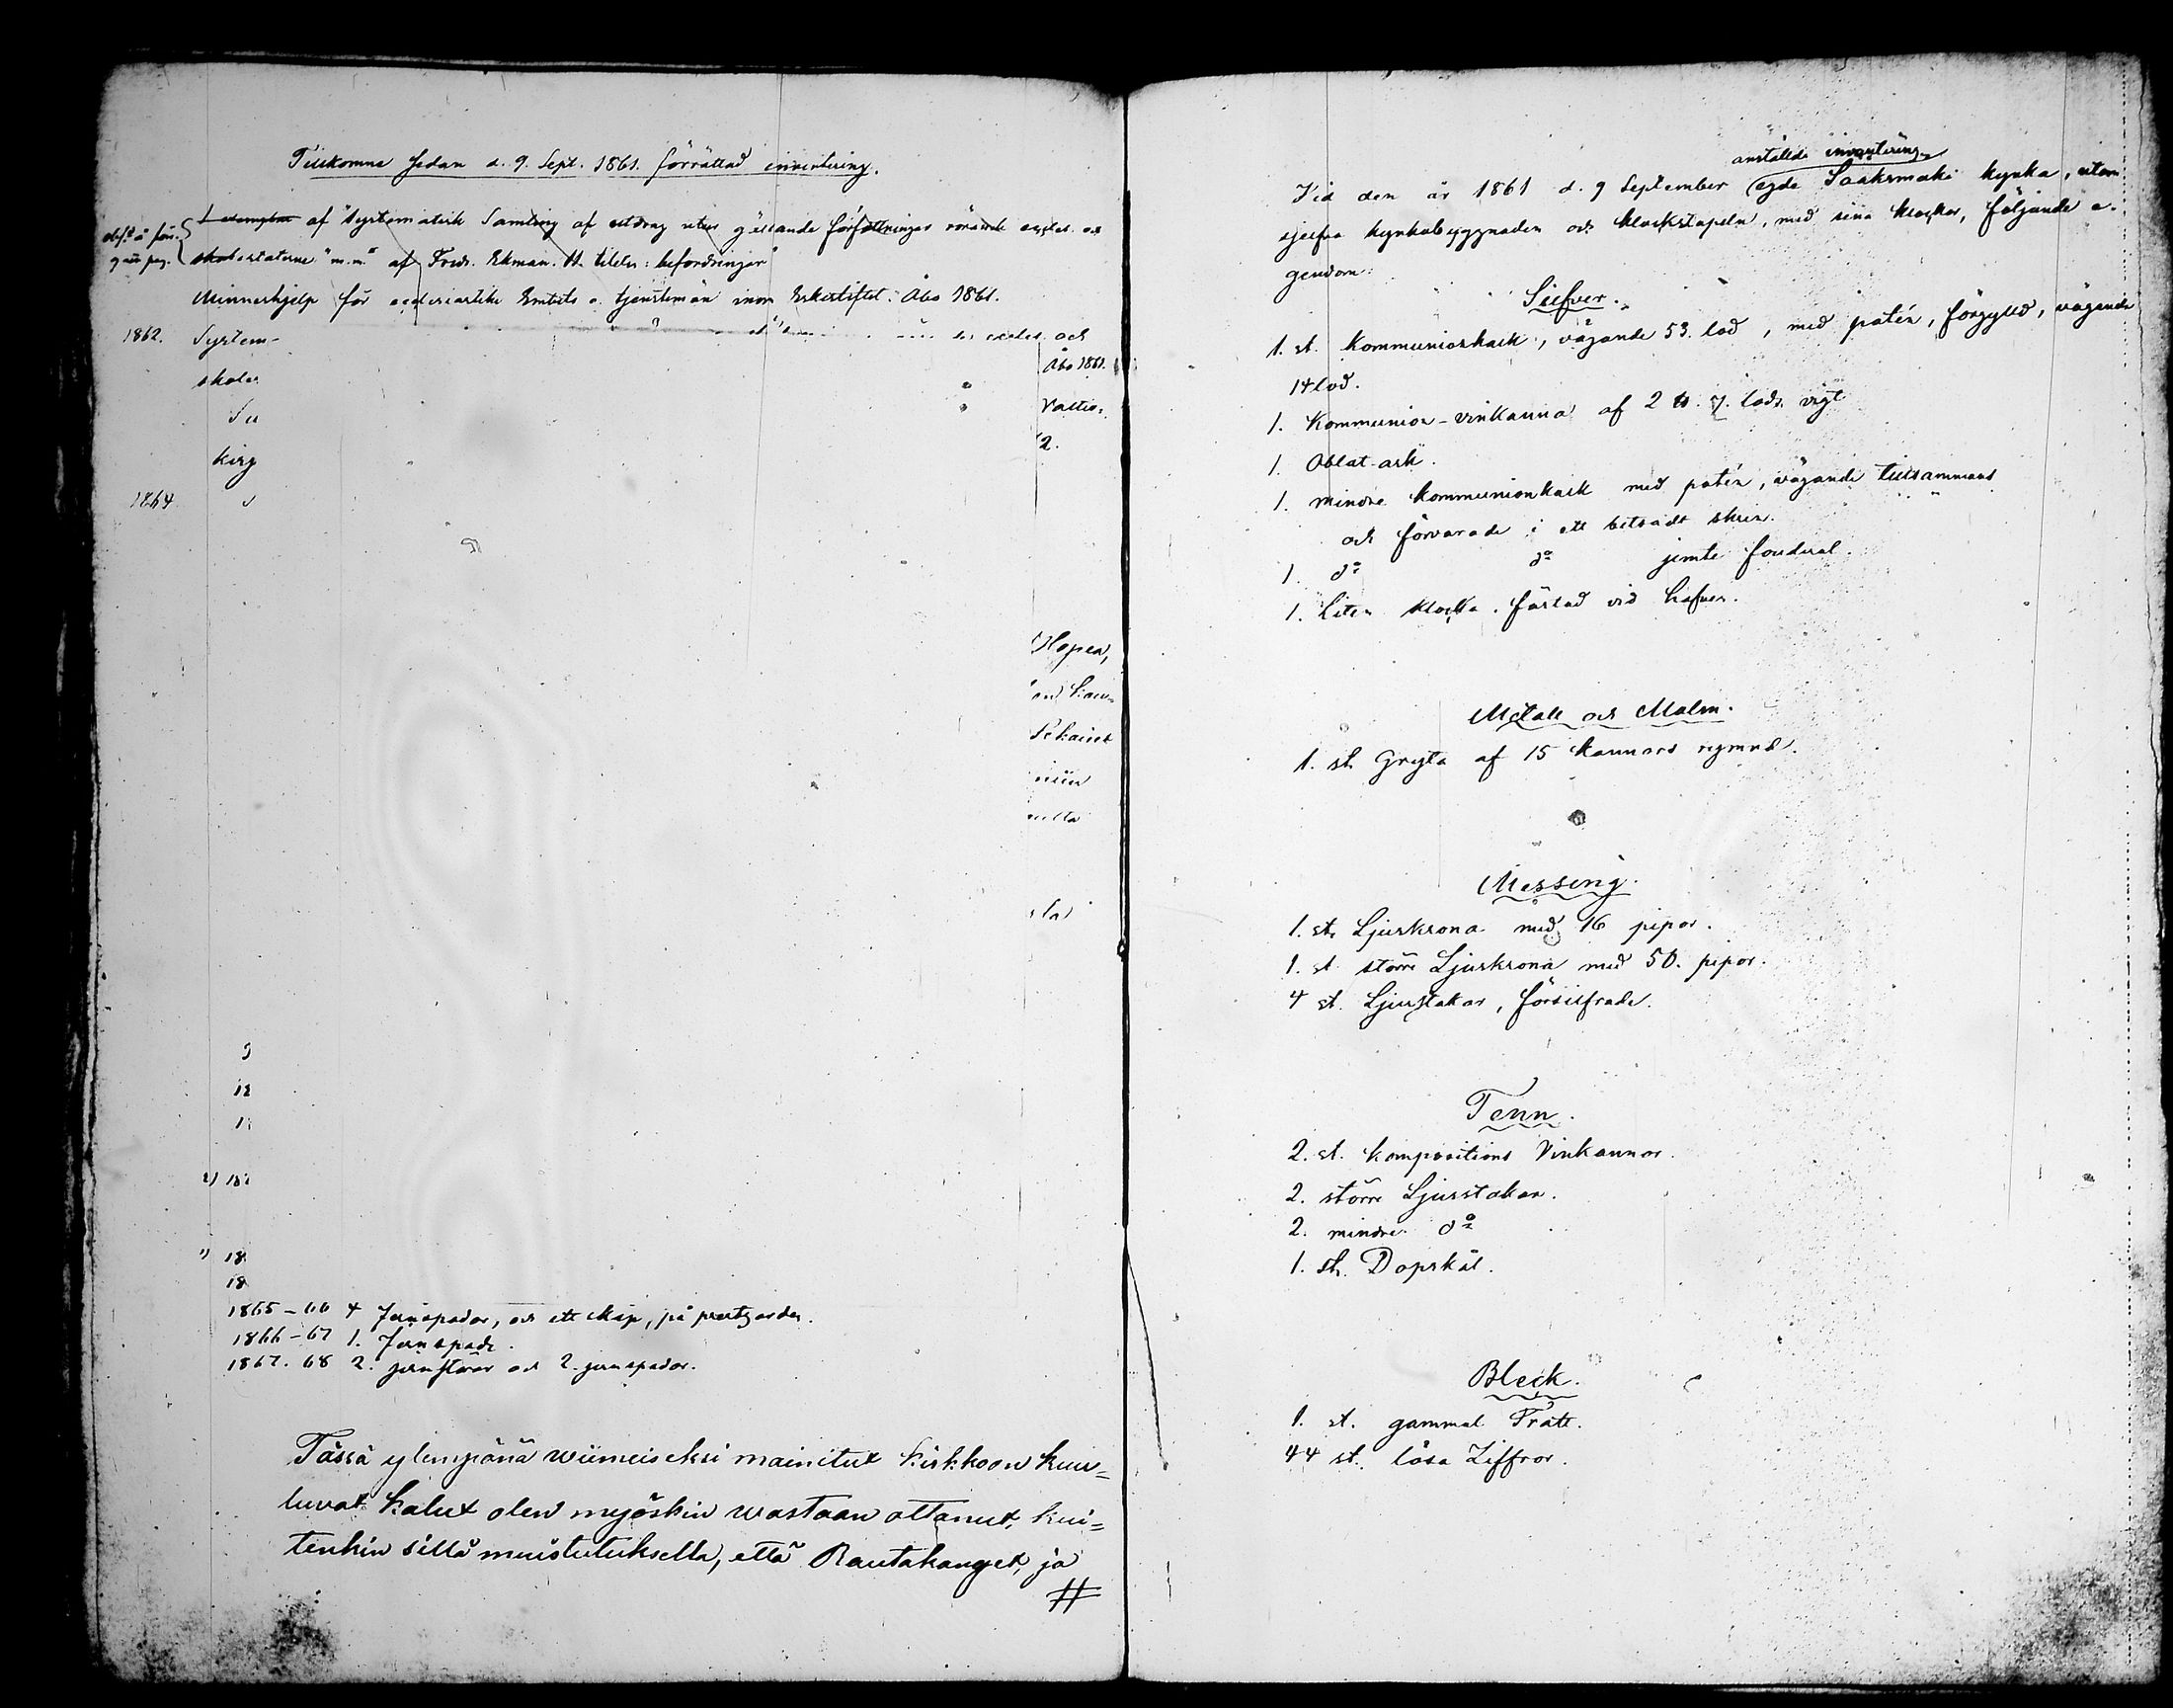 Tillkomne sedan d. 9. Sept. 1861. förrättad inventering.
1 exemplar af "Systematisk Samling af utdrag utur gällande författningar rörande
skolestaterne" m.m." af Fredr. Ekman. II. titeln: befordringar"
Minneshjelp för ecclesiastike Embets o. tjenstemän inom Erkestiftet. Åbo 1861.
1862. System- och
skole Åbo 1861.
Su Valtio-
kirj 2.
1864
Hopea,
kau-
18
18
1865-66 4 Jernspadar, och ett skåp, på prestgården.
1866-67 1. Jernspade.
1867.68 2. jernstörar och 2. jernspadar.
Tässä ylempänä wiimeiseksi mainitut kirkkoon kuu=
luvat kalut olen myöskin wastaan ottanut, kui=
tenkin sillä muistutuksella, että Rautakanget, ja
#
anställde inventering
Vid den år 1861 d. 9 September egde Sääksmäki kyrka, utom
sjelfva kyrkobyggnaden och klockstapeln, med sina klockor, följande e-
gendom:
Silfver.
1. st. Kommunionkalk, vägande 53. lod, med patén, förgylld, vägande
14 lod.
1. Kommunion-vinkanna af 2 ℔. 7. lods vigt
1. Oblat-ask.
1. mindre kommunionkalk med patén, vägande tillsammans
och förvarade i ett skrin.
1. do do jemte fouderal.
1. Liten klocka. fästad vid håfven.
Metall och Malm.
1. st. Gryta af 15 kannors rymnd.
Messing.
1. st. Ljuskrona med 16 pipor.
1. st. större Ljuskrona med 50. pipor.
4 st. Ljustakar, försilfrade.
Tenn.
2. st. kompositions Vinkannor.
2. större Ljusstakar.
2. mindre do
1. st. Dopskål.
Bleck.
1. st. gammal Tratt.
44 st. lösa Ziffror.